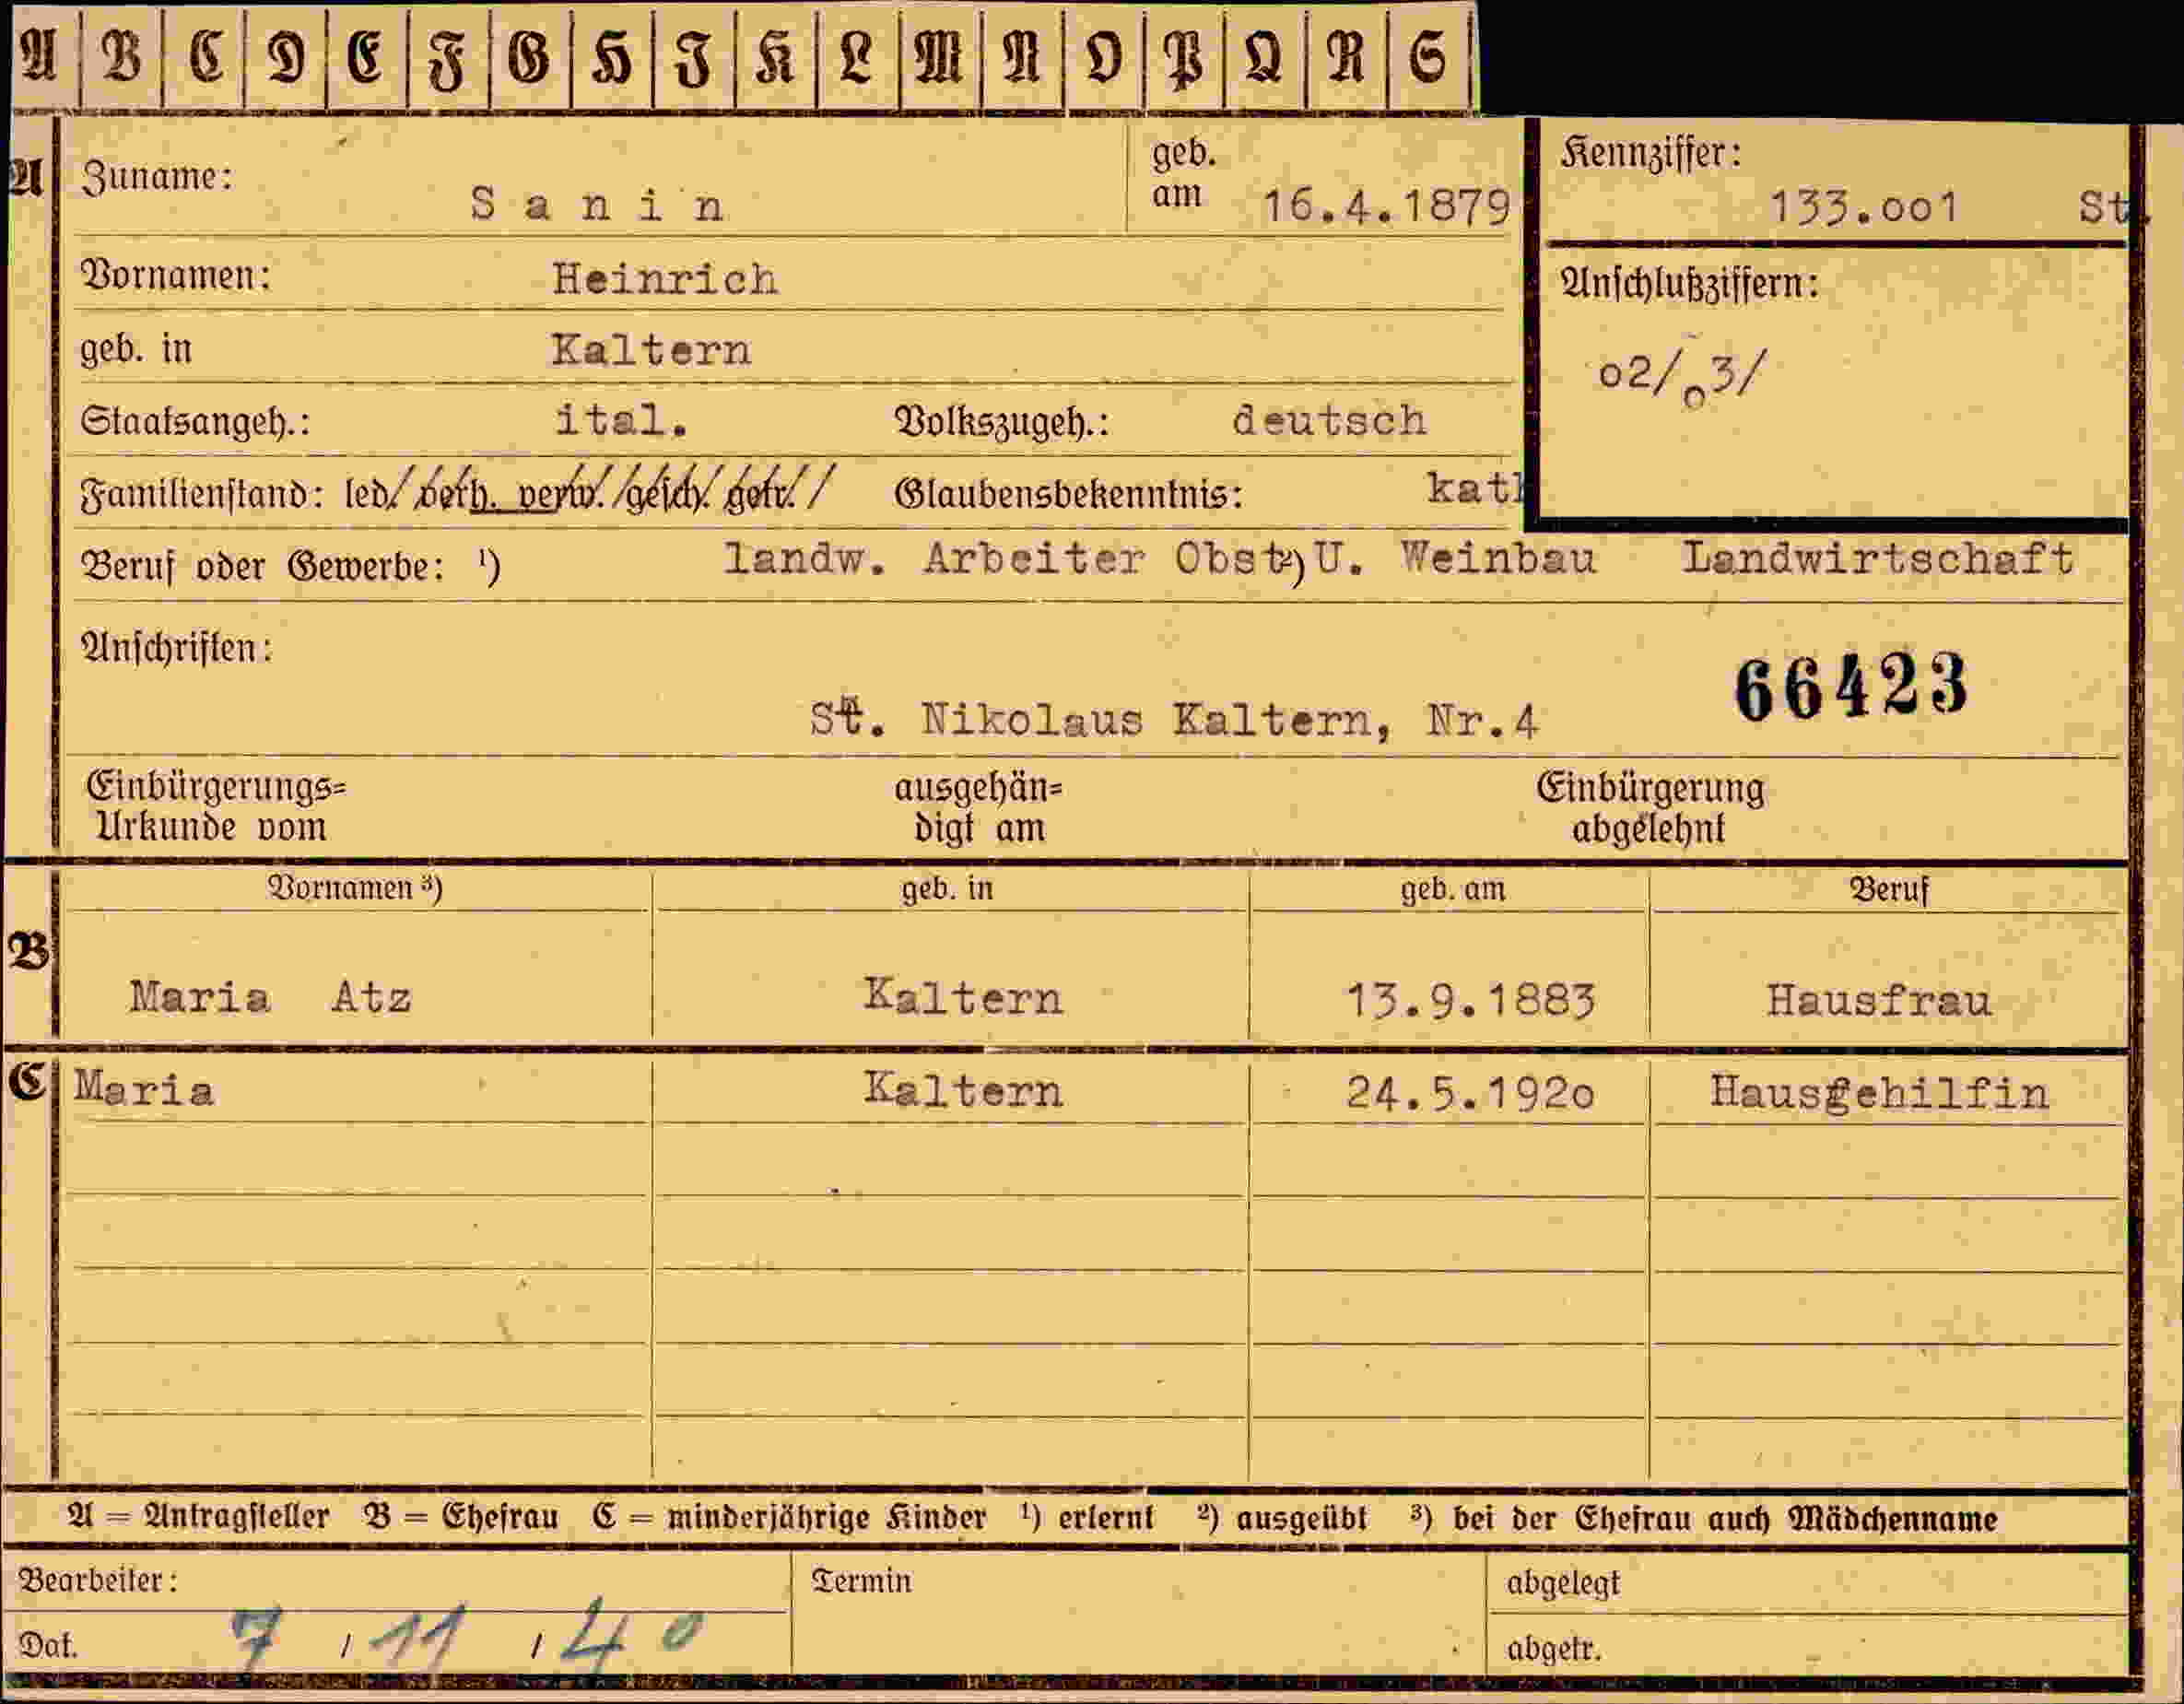 A B C D E F G H I K L M N O P Q R S
A Zuname: Sanin geb. am 16.4.1879
Kennziffer: 133.oo1 St.
Vornamen: Heinrich
Anschlußziffern:
o2/o3/
geb. in Kaltern
Staatsangeh.: ital. Volkszugeh.: deutsch
Familienstand: led. verh. verw. gesch. getr. Glaubensbekenntnis: kath
Beruf oder Gewerbe: ¹) landw. Arbeiter Obst ²) U. Weinbau Landwirtschaft
Anschriften:
66423
St. Nikolaus Kaltern, Nr.4
Einbürgerungs= Urkunde vom ausgehän= digt am Einbürgerung abgelehnt
Vornamen ³) geb. in geb. am Beruf
B Maria Atz Kaltern 13.9.1883 Hausfrau
C Maria Kaltern 24.5.192o Hausgehilfin
A = Antragsteller B = Ehefrau C = minderjährige Kinder ¹) erlernt ²) ausgeübt ³) bei der Ehefrau auch Mädchenname
Bearbeiter: Termin abgelegt
Dat. 7 / 11 / 40 abgetr.